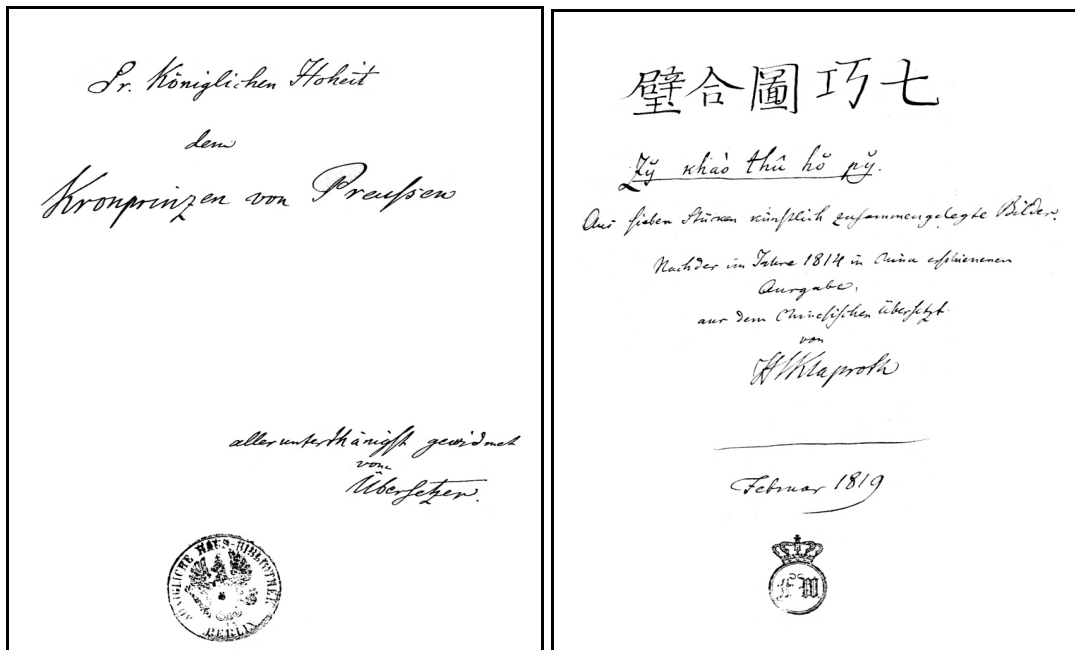 Sr. Königlichen Hoheit
dem
Kronprinzen von Preußen
allerunterthänigst gewidmet
vom
Übersetzer.
KÖNIGLICHE HAUS-BIBLIOTHEK
BERLIN
璧合圖巧七
Zў khào thû hŏ pў.
Aus sieben Stücken künstlich zusammengelegte Bilder.
Nach der im Jahre 1814 in China erschienenen
Ausgabe,
aus dem Chinesischen übersetzt
von
Klaproth
Februar 1819
FW